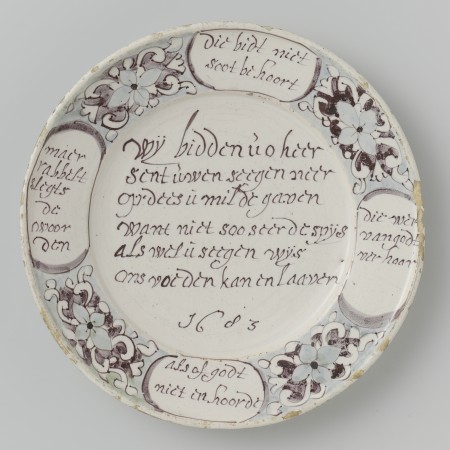 die bidt niet
soot behoort
wij bidden u o heer
sent uwen seegen neer
op dees u milde gaven
want niet soo seer de spijs
als wel u seegen wijs
ons voeden kan en laaven
1683
die wert
van godt
verhoort
als of godt
niet en hoorde
maer
rabbelt
slegts
de
woor
den